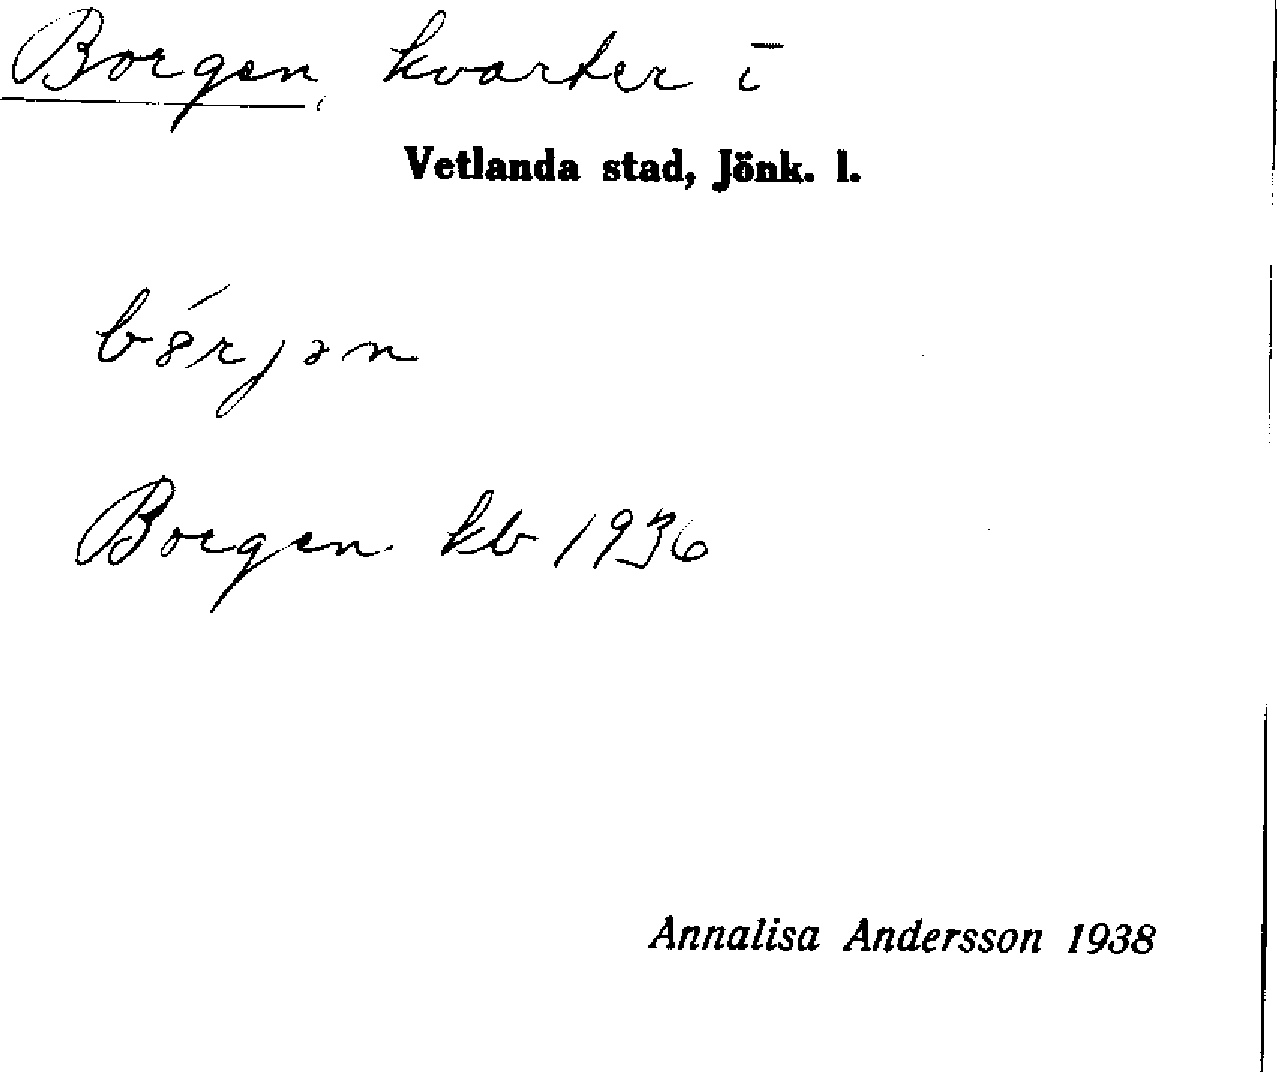 Borgen, kvarter i
Vetlanda stad, Jönk. l.
Borgen kb 1936
Annalisa Andersson 1938